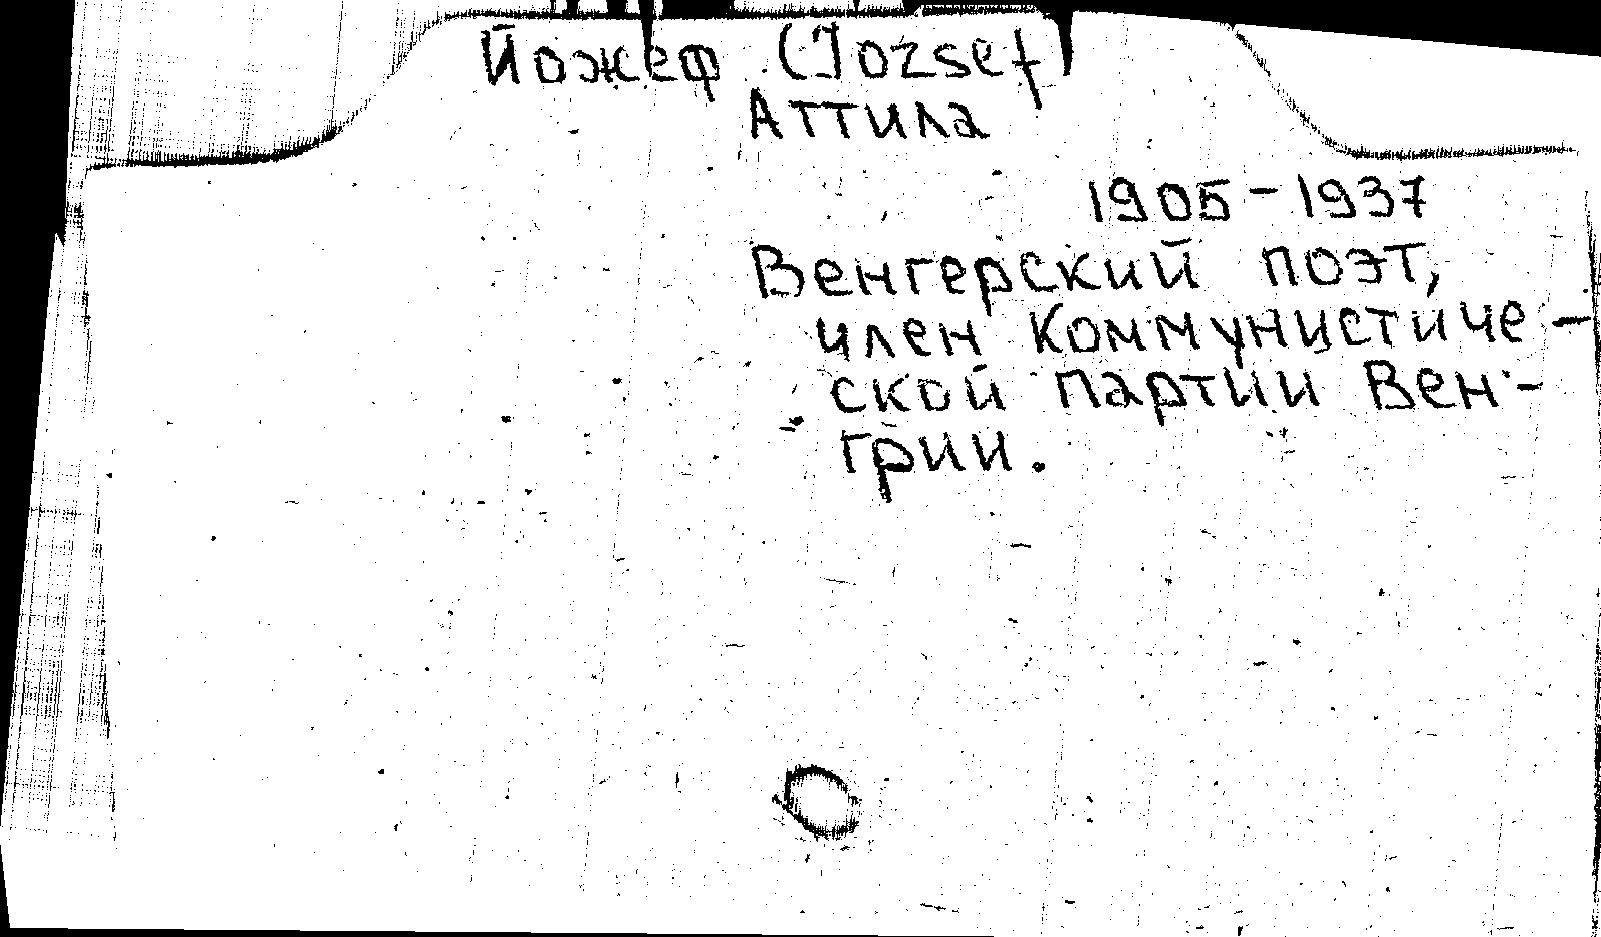 Йожеф (Jozsef)
Аттила
1905-1937
Венгерский поэт,
член Коммунистиче-
ской партии Вен-
грии.